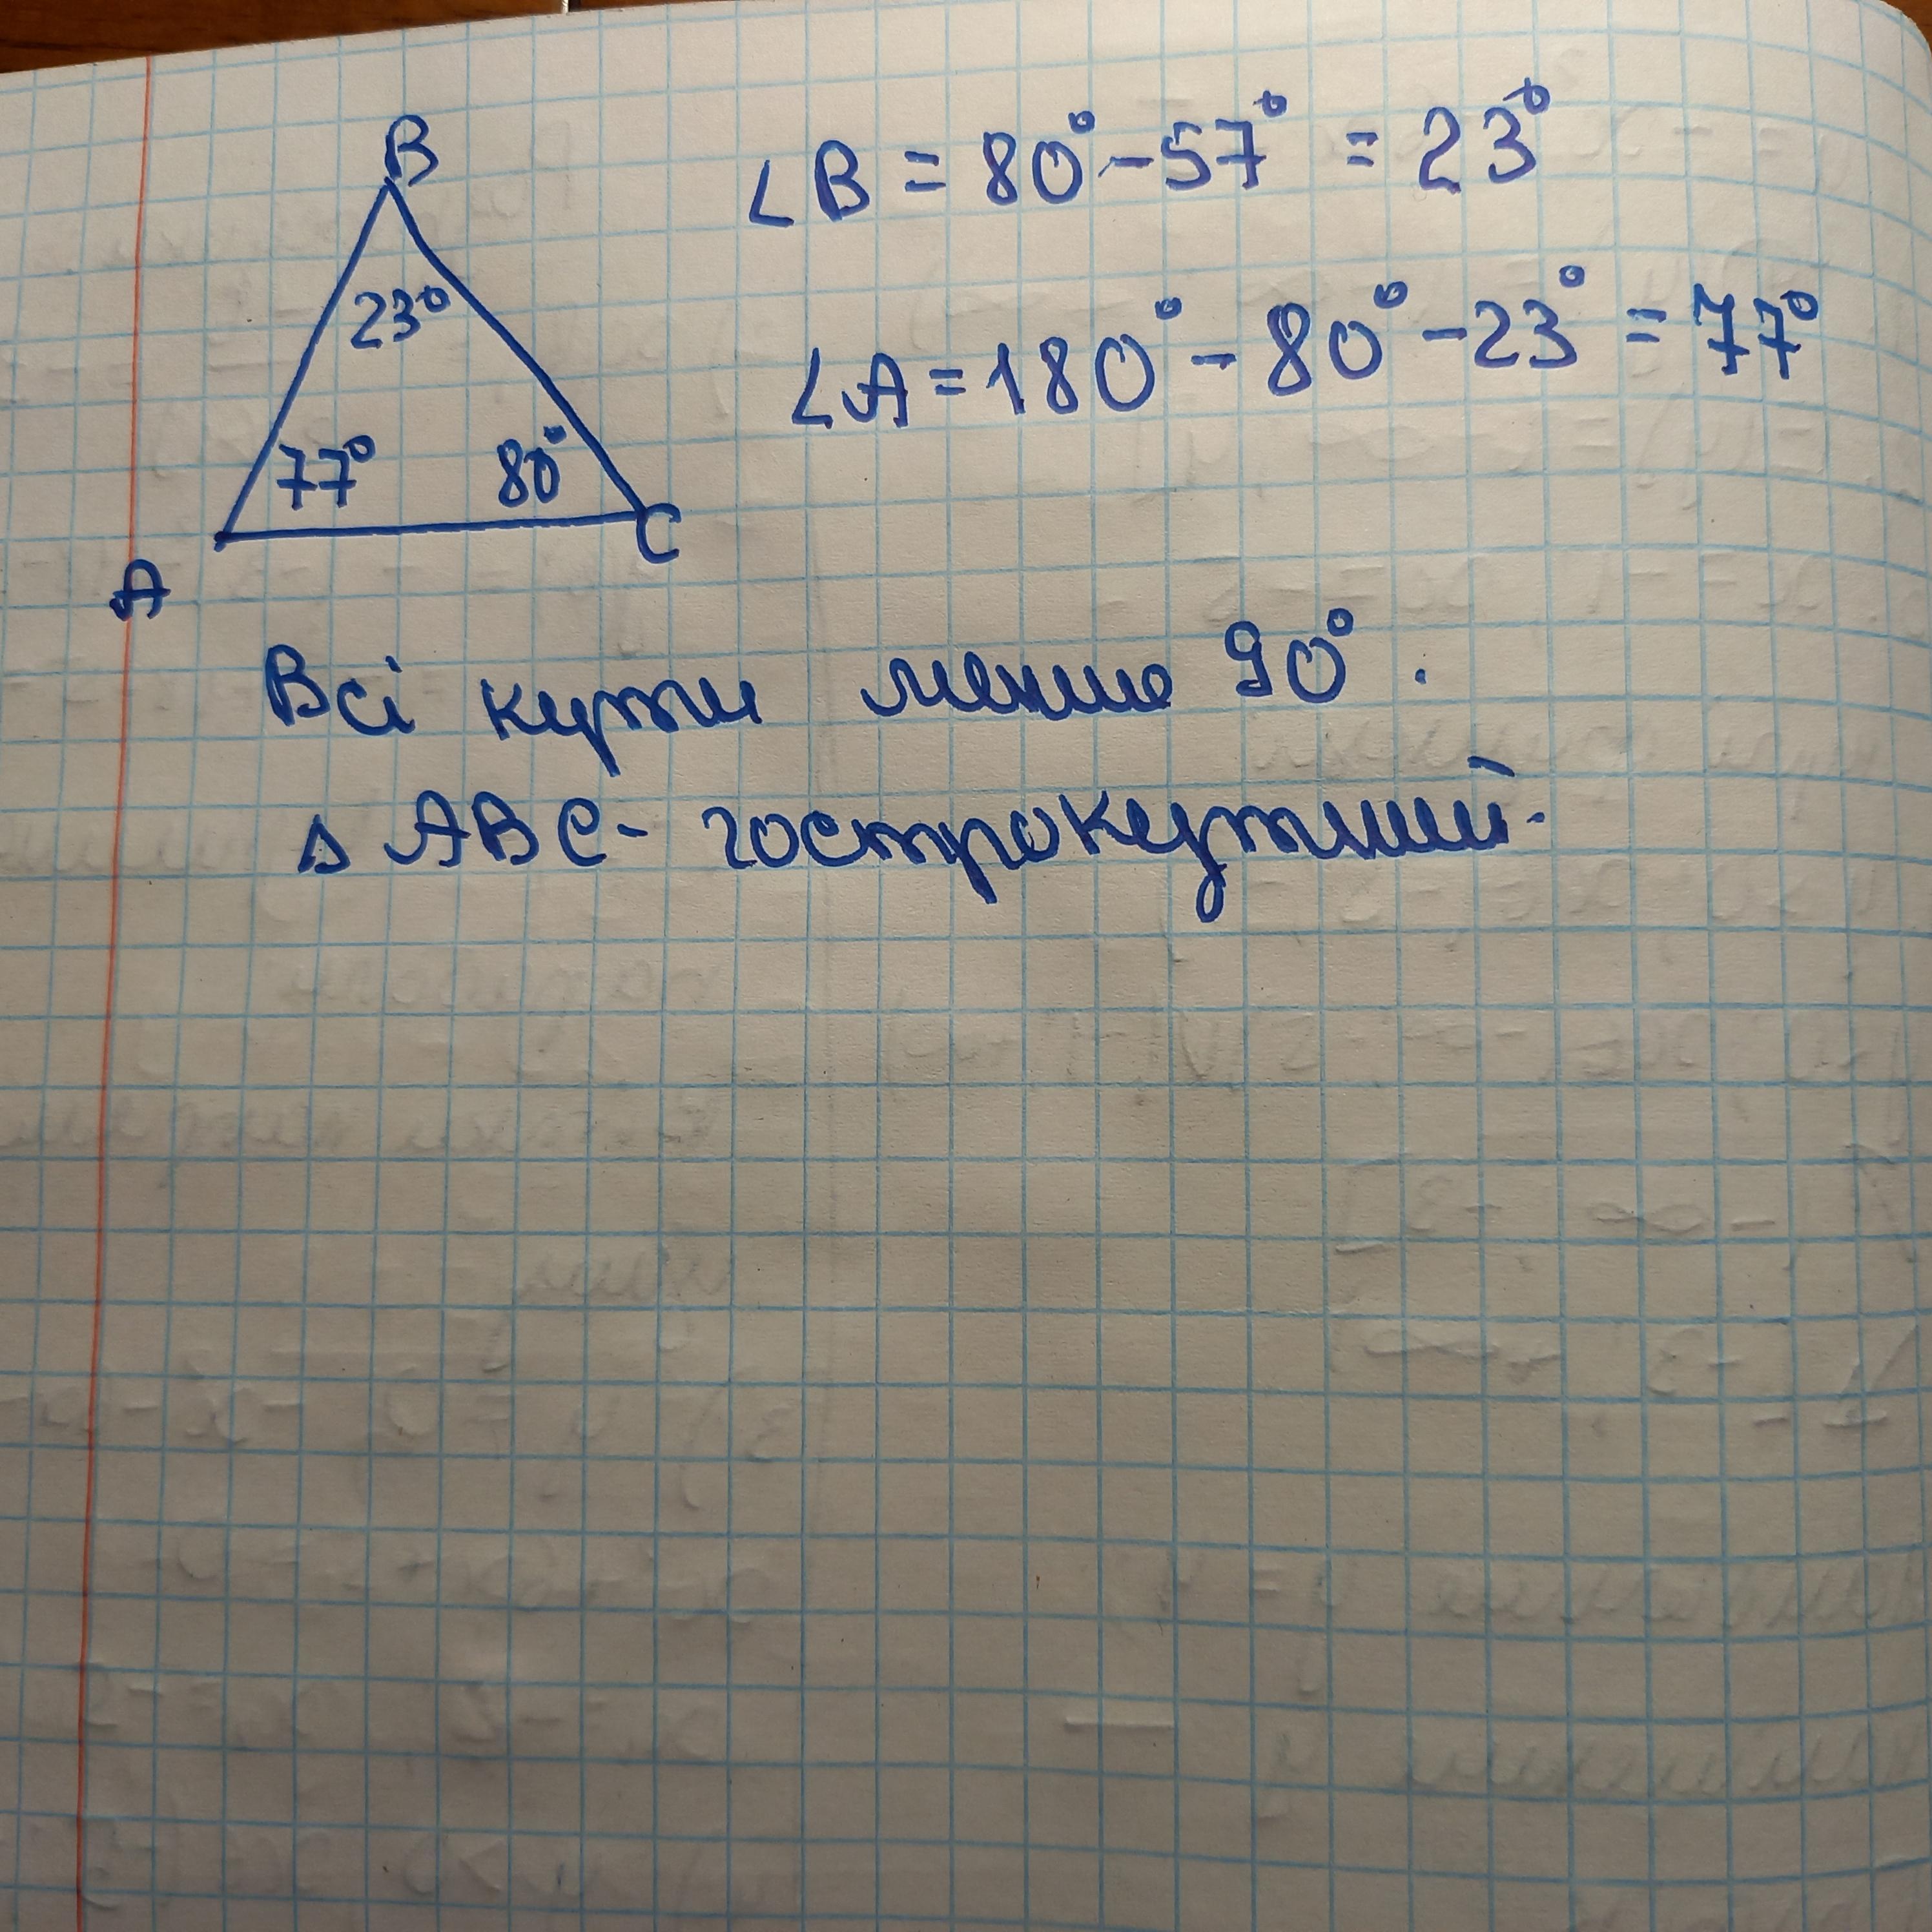 B
∠B = 80° - 57° = 23°
∠A = 180° - 80° - 23° = 77°
23°
77° 80°
A C
Всі кути менше 90°.
Δ ABC - гострокутний.